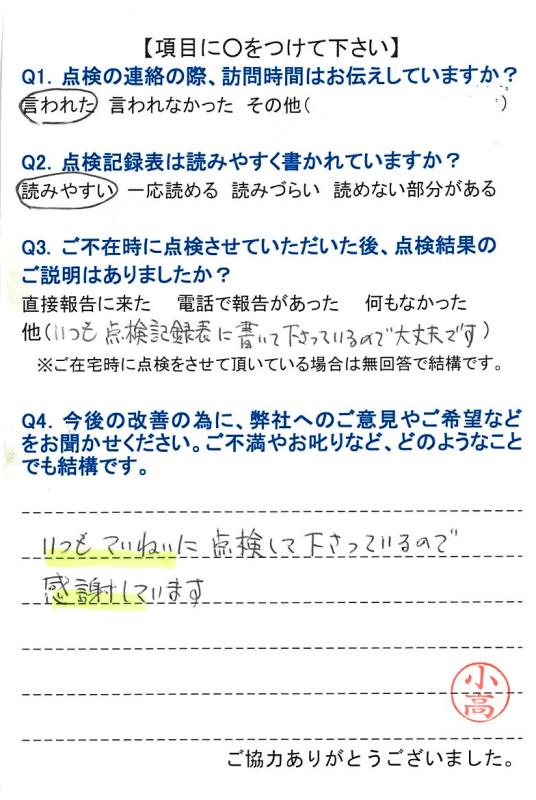 【項目に〇をつけて下さい】
Q1. 点検の連絡の際、訪問時間はお伝えしていますか？
言われた 言われなかった その他( )
Q2. 点検記録表は読みやすく書かれていますか？
読みやすい 一応読める 読みづらい 読めない部分がある
Q3. ご不在時に点検させていただいた後、点検結果の
ご説明はありましたか？
直接報告に来た 電話で報告があった 何もなかった
他(いつも点検記録表に書いて下さっているので大丈夫です)
※ご在宅時に点検をさせて頂いている場合は無回答で結構です。
Q4. 今後の改善の為に、弊社へのご意見やご希望など
をお聞かせください。ご不満やお叱りなど、どのようなこと
でも結構です。
いつもていねいに点検して下さっているので
感謝しています
小高
ご協力ありがとうございました。